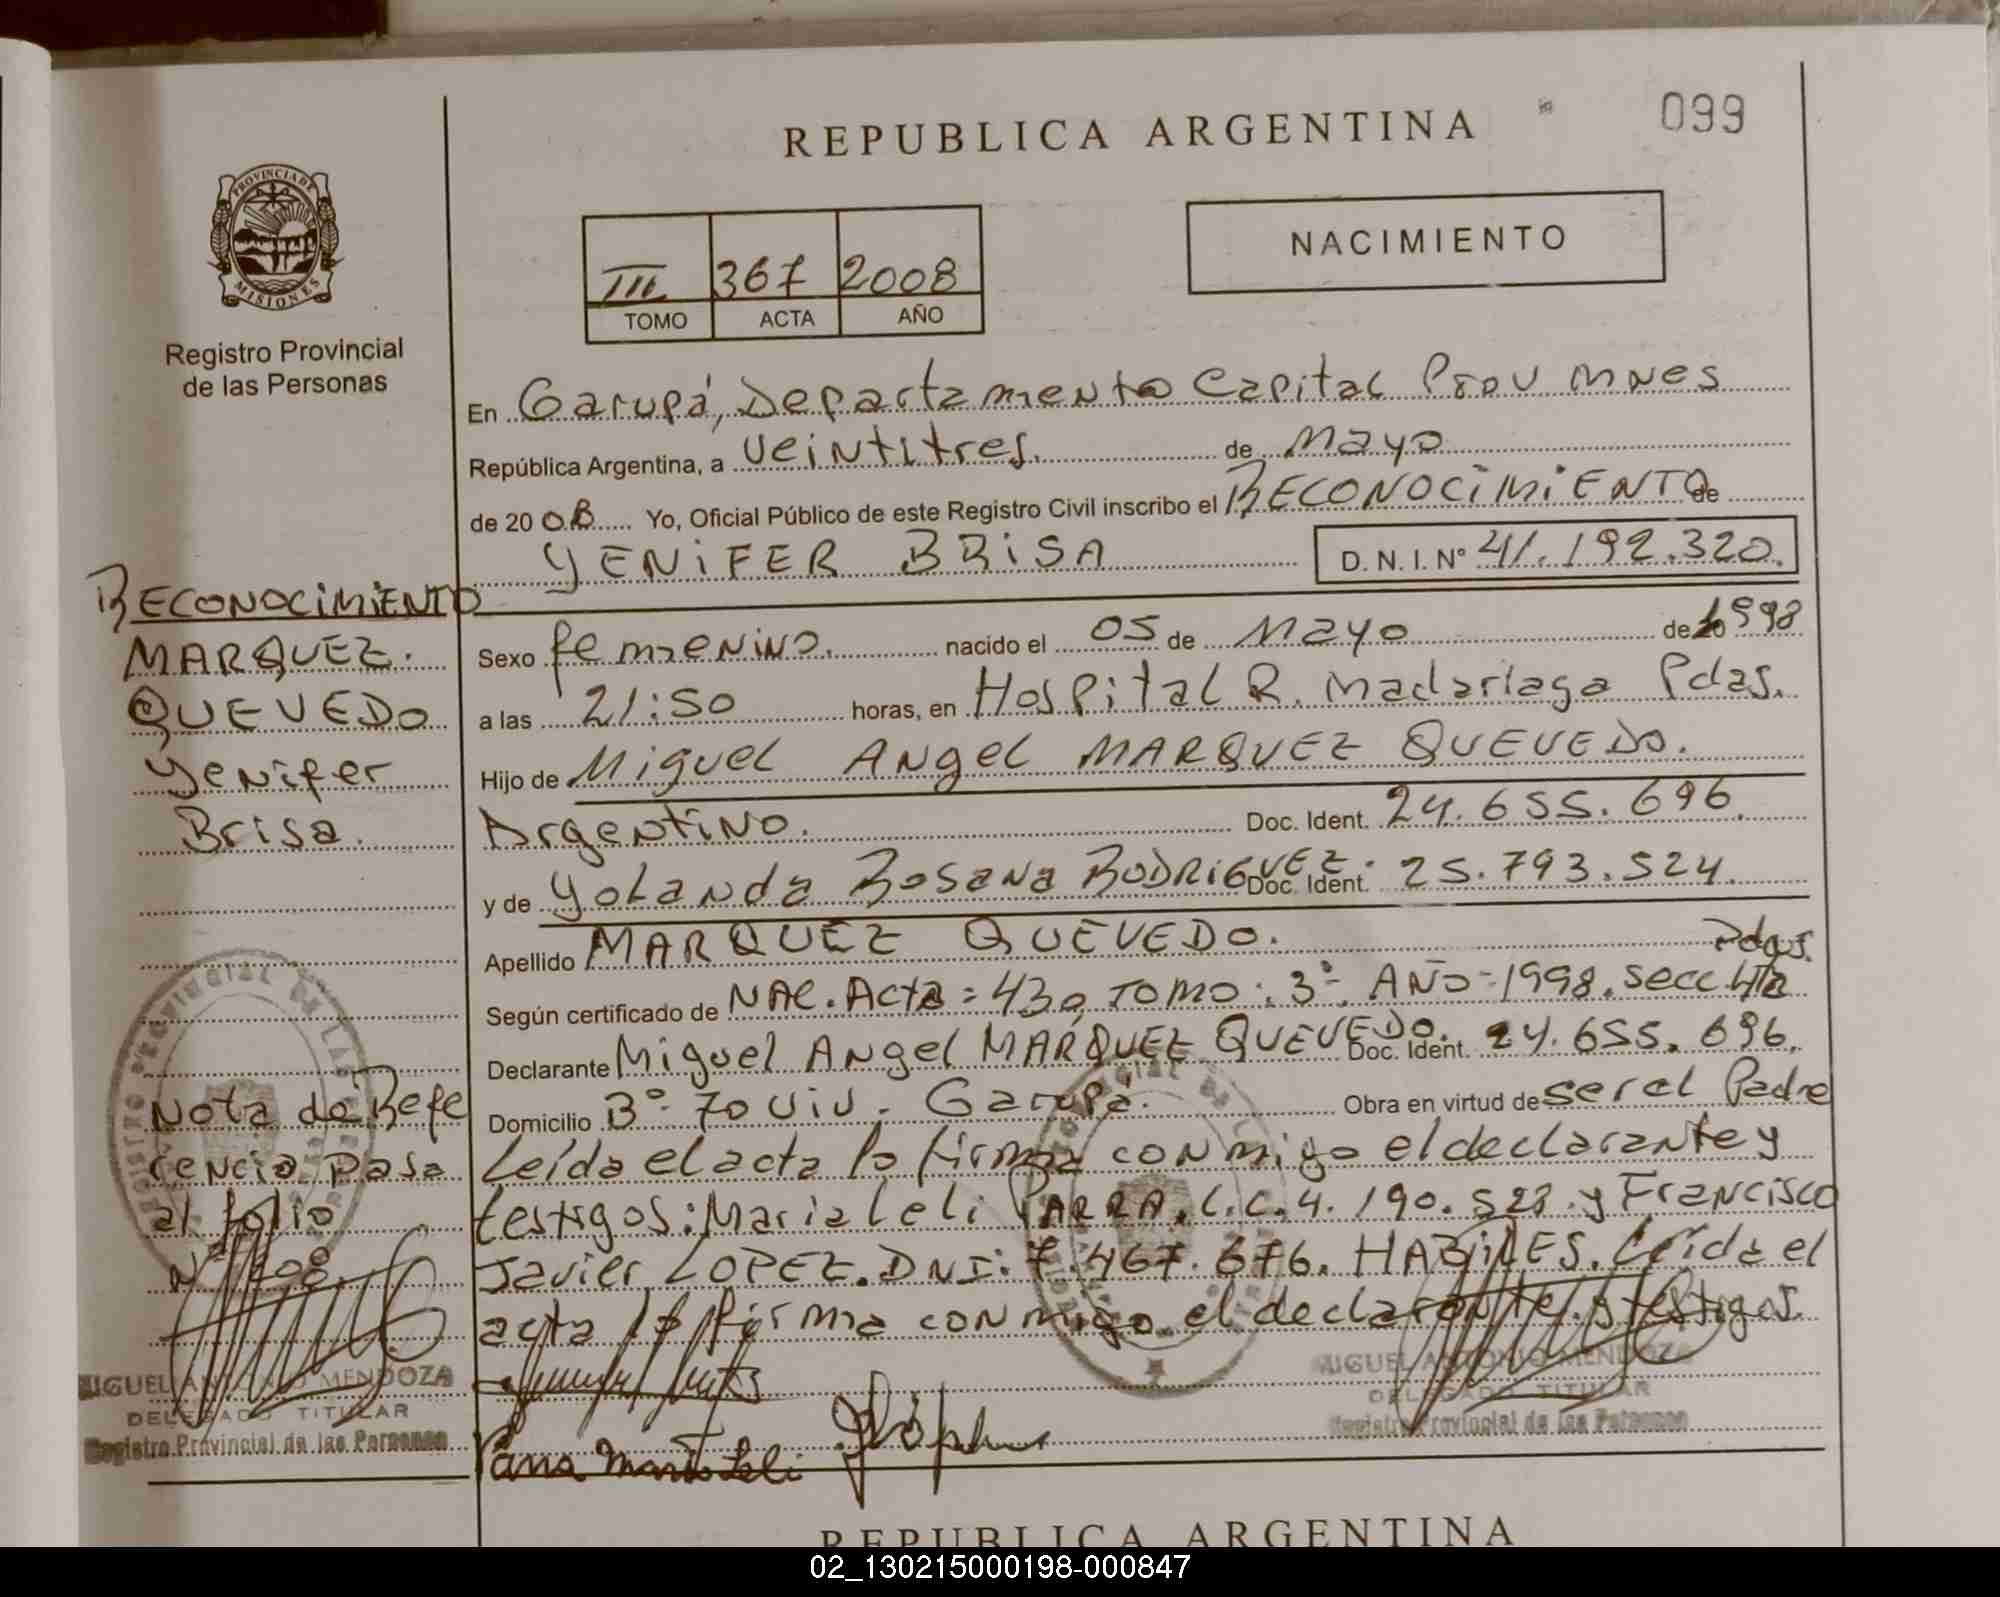 REPUBLICA ARGENTINA
099
PROVINCIA DE
MISIONES
Registro Provincial
de las Personas
III 367 2008
TOMO ACTA AÑO
NACIMIENTO
En Garupá, Departamento Capital Prov Mnes
República Argentina, a veintitres. de Mayo
de 20 08 Yo, Oficial Público de este Registro Civil inscribo el RECONOCIMIENTO de
YENIFER BRISA D. N. I. N° 41.192.320.
RECONOCIMIENTO
MARQUEZ.
QUEVEDO
Yenifer
Brisa.
Sexo femenino. nacido el 05 de Mayo de 1998
a las 21:50 horas, en Hospital R. Madariaga Pdas.
Hijo de Miguel Angel MARQUEZ QUEVEDO.
Argentino. Doc. Ident. 24.655.696.
y de Yolanda Rosana RODRIGUEZ. Doc. Ident. 25.793.524.
Apellido MARQUEZ QUEVEDO. Pdas.
Según certificado de NAC. Acta: 430, TOMO: 3°. AÑO-1998. secc 4ta
Declarante Miguel Angel MÁRQUEZ QUEVEDO. Doc. Ident. 24.655.696.
Domicilio B°- 70 viv. Garupá. Obra en virtud de ser el Padre
Leída el acta la firma conmigo el declarante y
testigos: Maria Leli PARRA. L.C. 4.190.528 y Francisco
Javier LOPEZ. DNI: 7.467.676. HABILES. Leída el
acta la firma conmigo el declarante y testigos.
Nota de Refe
rencia pasa
al folio
MIGUEL ANTONIO MENDOZA
DELEGADO TITULAR
Registro Provincial de las Personas
MIGUEL ANTONIO MENDOZA
DELEGADO TITULAR
Registro Provincial de las Personas
Parra Maria Leli
REPUBLICA ARGENTINA
02_130215000198-000847